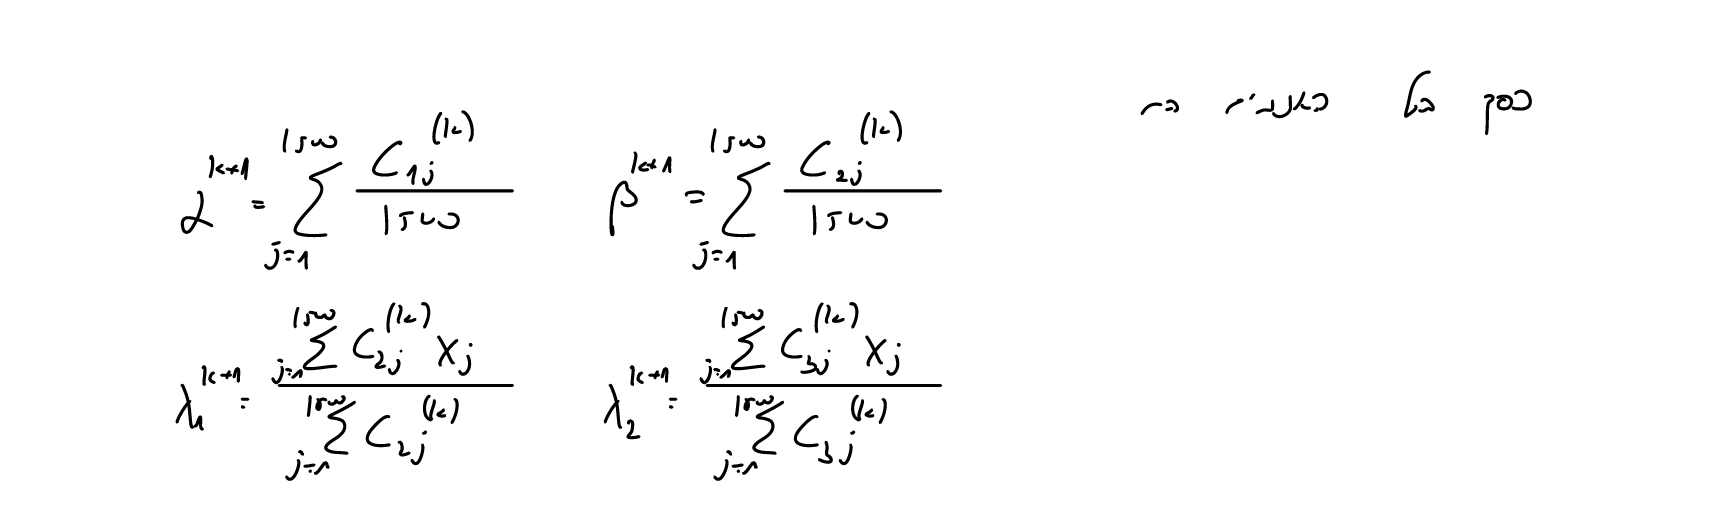 בסך הכל
α^{k+1} = \sum_{j=1}^{1500} \frac{C_{1j}^{(k)}}{1500}    β^{k+1} = \sum_{j=1}^{1500} \frac{C_{2j}^{(k)}}{1500}
λ_1^{k+1} = \frac{\sum_{j=1}^{1500} C_{2j}^{(k)} x_j}{\sum_{j=1}^{1500} C_{2j}^{(k)}}    λ_2^{k+1} = \frac{\sum_{j=1}^{1500} C_{3j}^{(k)} x_j}{\sum_{j=1}^{1500} C_{3j}^{(k)}}